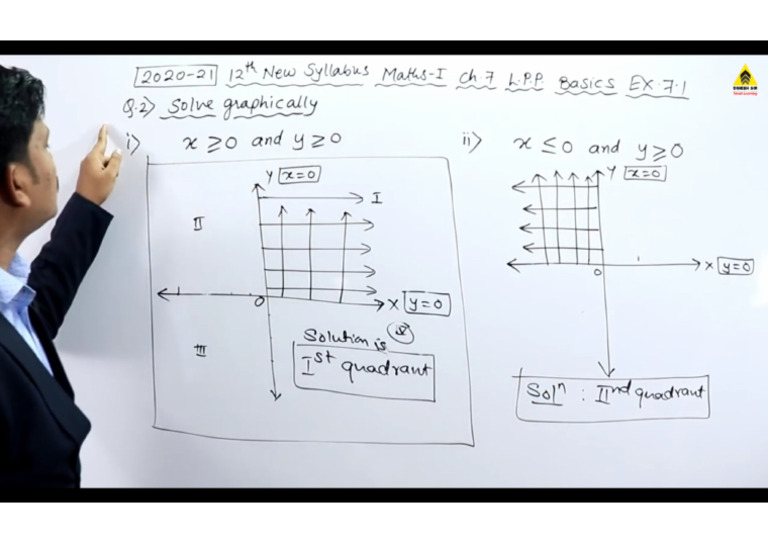 2020-21 12th New Syllabus Maths-I Ch.7 L.P.P. Basics EX.7.1
Q.2) Solve graphically
i) x ≥ 0 and y ≥ 0
ii) x ≤ 0 and y ≥ 0
Y x=0
I
II
O
X y=0
III
Solution is
Ist quadrant
Y x=0
O
X y=0
Soln : IInd quadrant